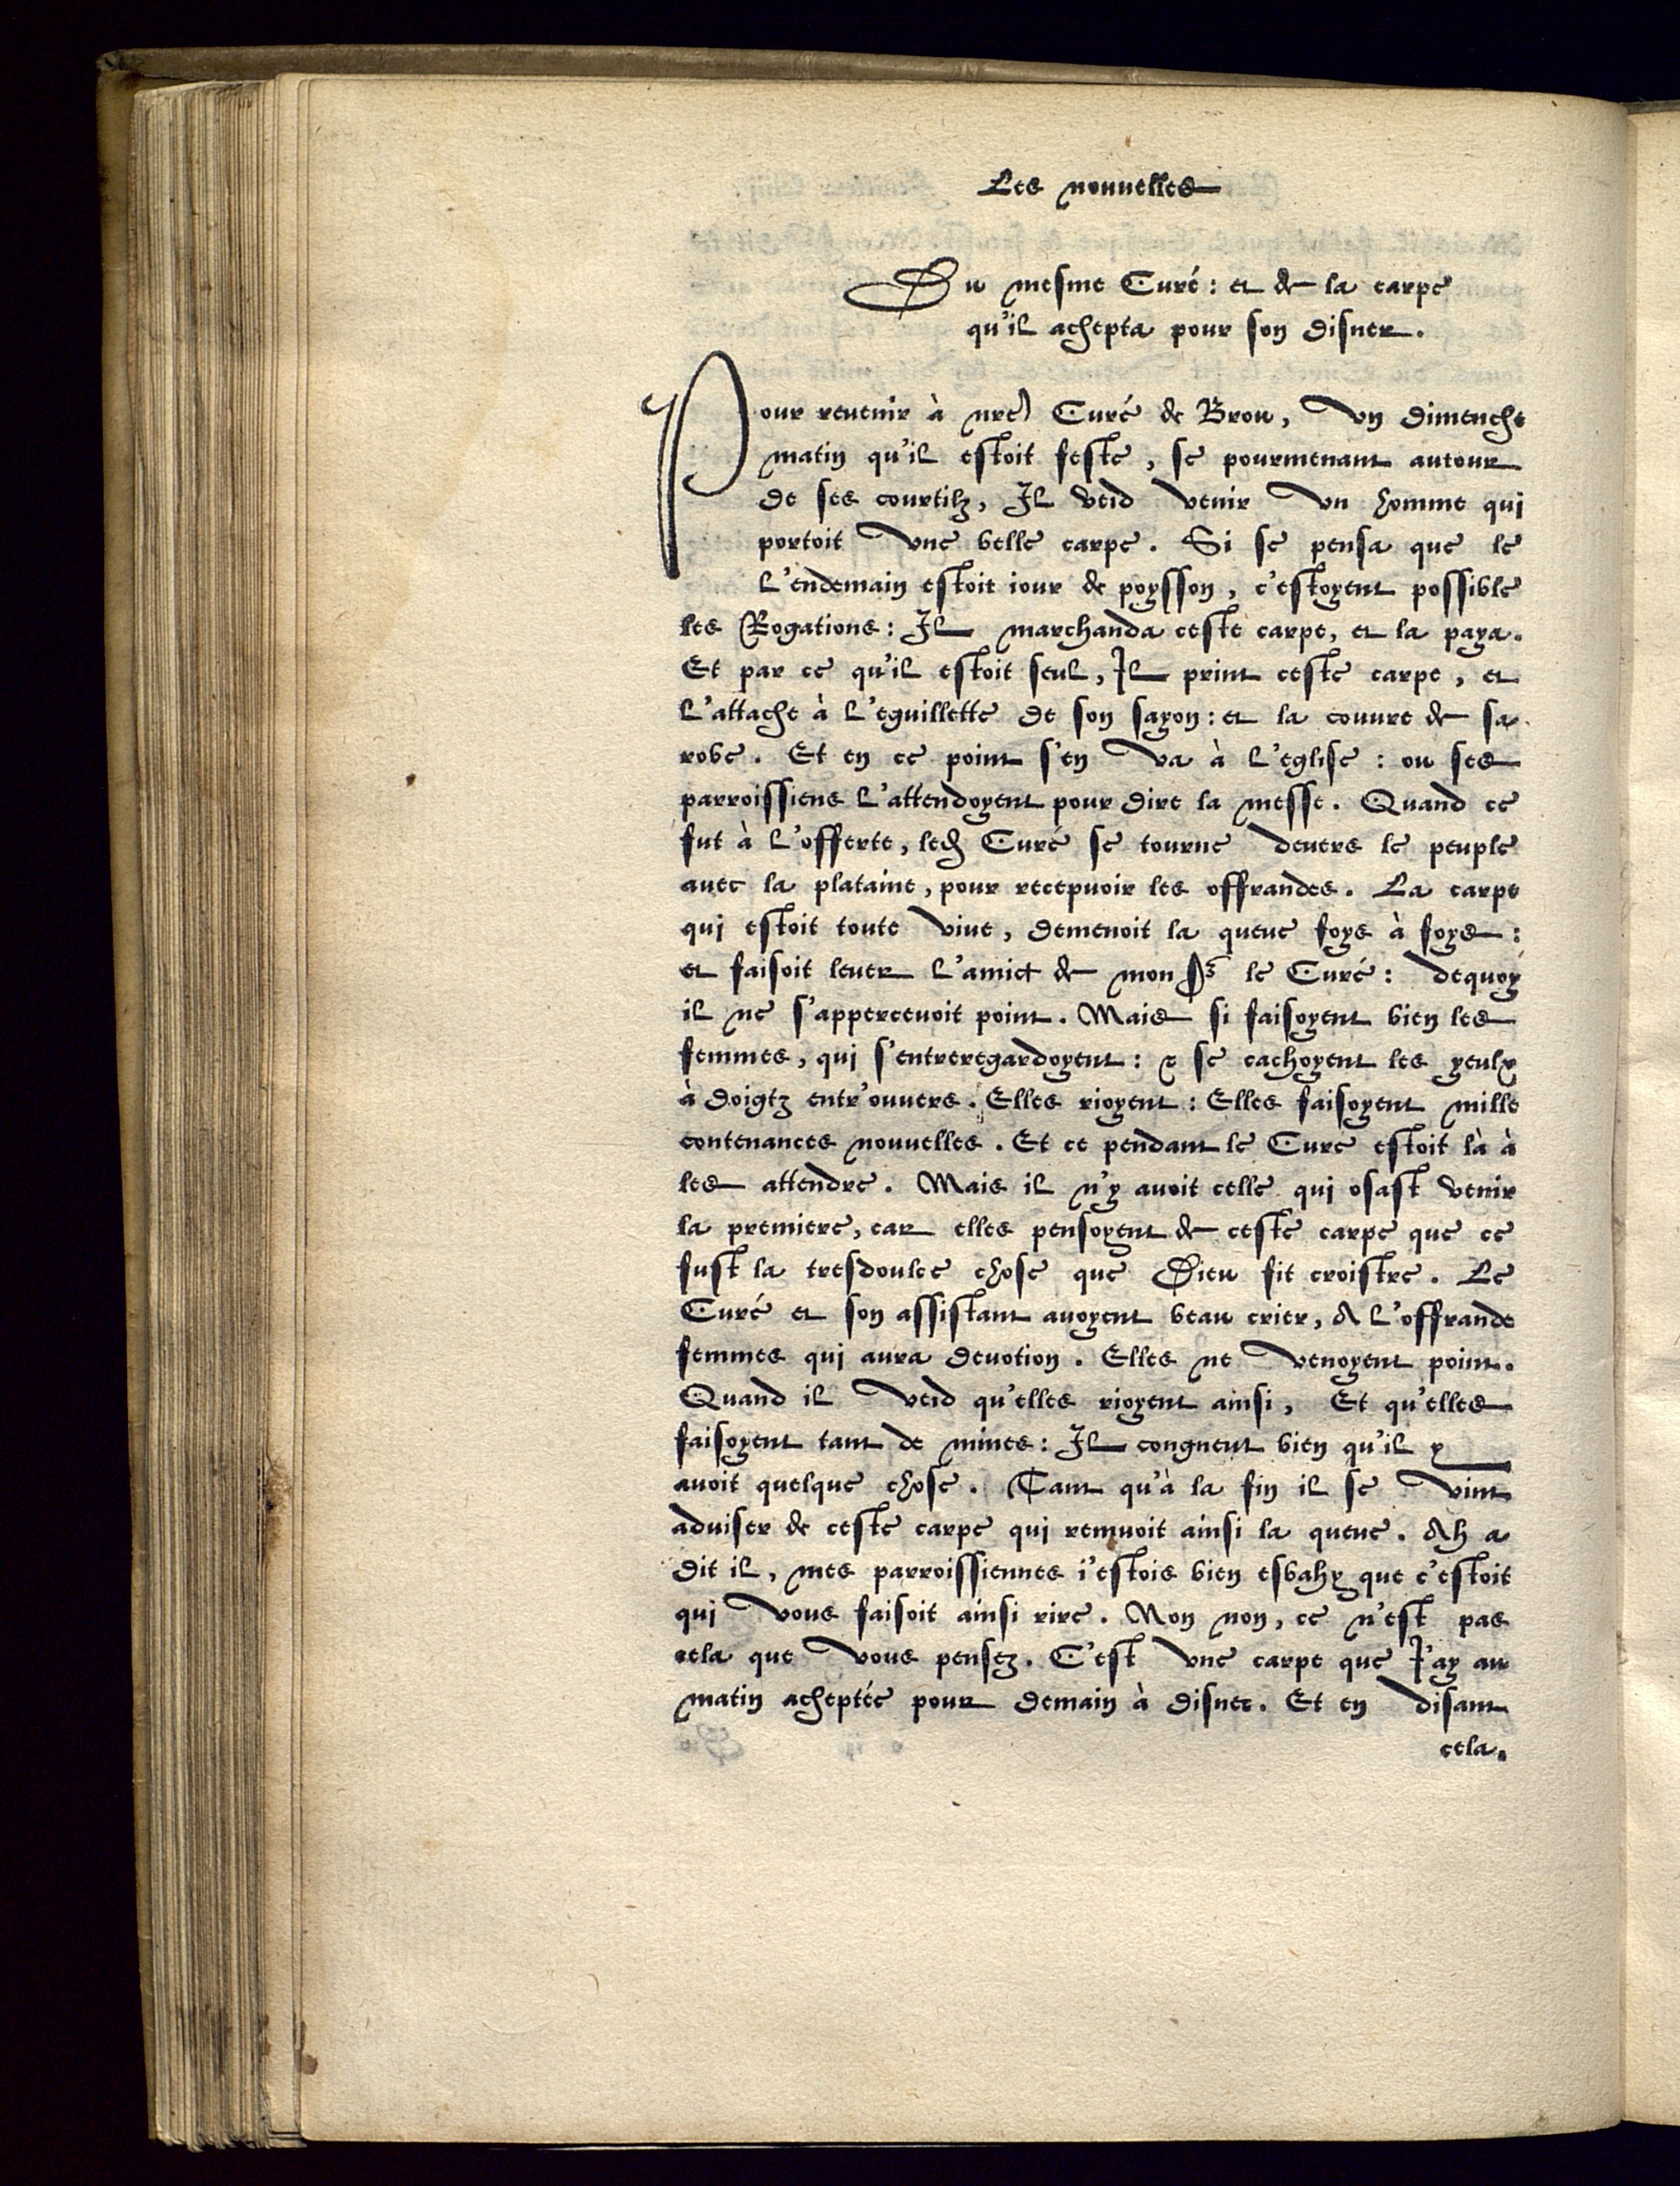 Les nouuelles
Du mesme Curé : et de la carpe
qu'il achepta pour son disner.
Pour reuenir à nre Curé de Brou, vn dimenche
matin qu'il estoit feste, se pourmenant autour
de ses courtilz, Il veid venir vn homme qui
portoit vne belle carpe. Si se pensa que le
l'endemain estoit iour de poysson, c'estoyent possible
les Rogations : Il marchanda ceste carpe, et la paya.
Et par ce qu'il estoit seul, Il print ceste carpe, et
l'attache à l'eguillette de son sayon : et la couure de sa
robe. Et en ce point s'en va à l'eglise : ou ses
parroissiens l'attendoyent pour dire la messe. Quand ce
fut à l'offerte, led Curé se tourne deuers le peuple
auec la plataine, pour recepuoir les offrandes. La carpe
qui estoit toute viue, demenoit la queue foys à foys :
et faisoit leuer l'amict de mon Sr le Curé : dequoy
il ne s'apperceuoit point. Mais si faisoyent bien les
femmes, qui s'entreregardoyent : & se cachoyent les yeulx
à doigtz entr'ouuers. Elles rioyent : Elles faisoyent mille
contenances nouuelles. Et ce pendant le Curé estoit là à
les attendre. Mais il n'y auoit celle qui osast venir
la premiere, car elles pensoyent de ceste carpe que ce
fust la tresdoulce chose que Dieu fit croistre. Le
Curé et son assistant auoyent beau crier, A l'offrande
femmes qui aura deuotion. Elles ne venoyent point.
Quand il veid qu'elles rioyent ainsi, Et qu'elles
faisoyent tant de mines : Il congneut bien qu'il y
auoit quelque chose. Tant qu'à la fin il se vint
aduiser de ceste carpe qui remuoit ainsi la queue. Ah a
dit il, mes parroissiennes i'estois bien esbahy que c'estoit
qui vous faisoit ainsi rire. Non non, ce n'est pas
cela que vous pensez. C'est vne carpe que I'ay au
matin acheptée pour demain à disner. Et en disant
cela.